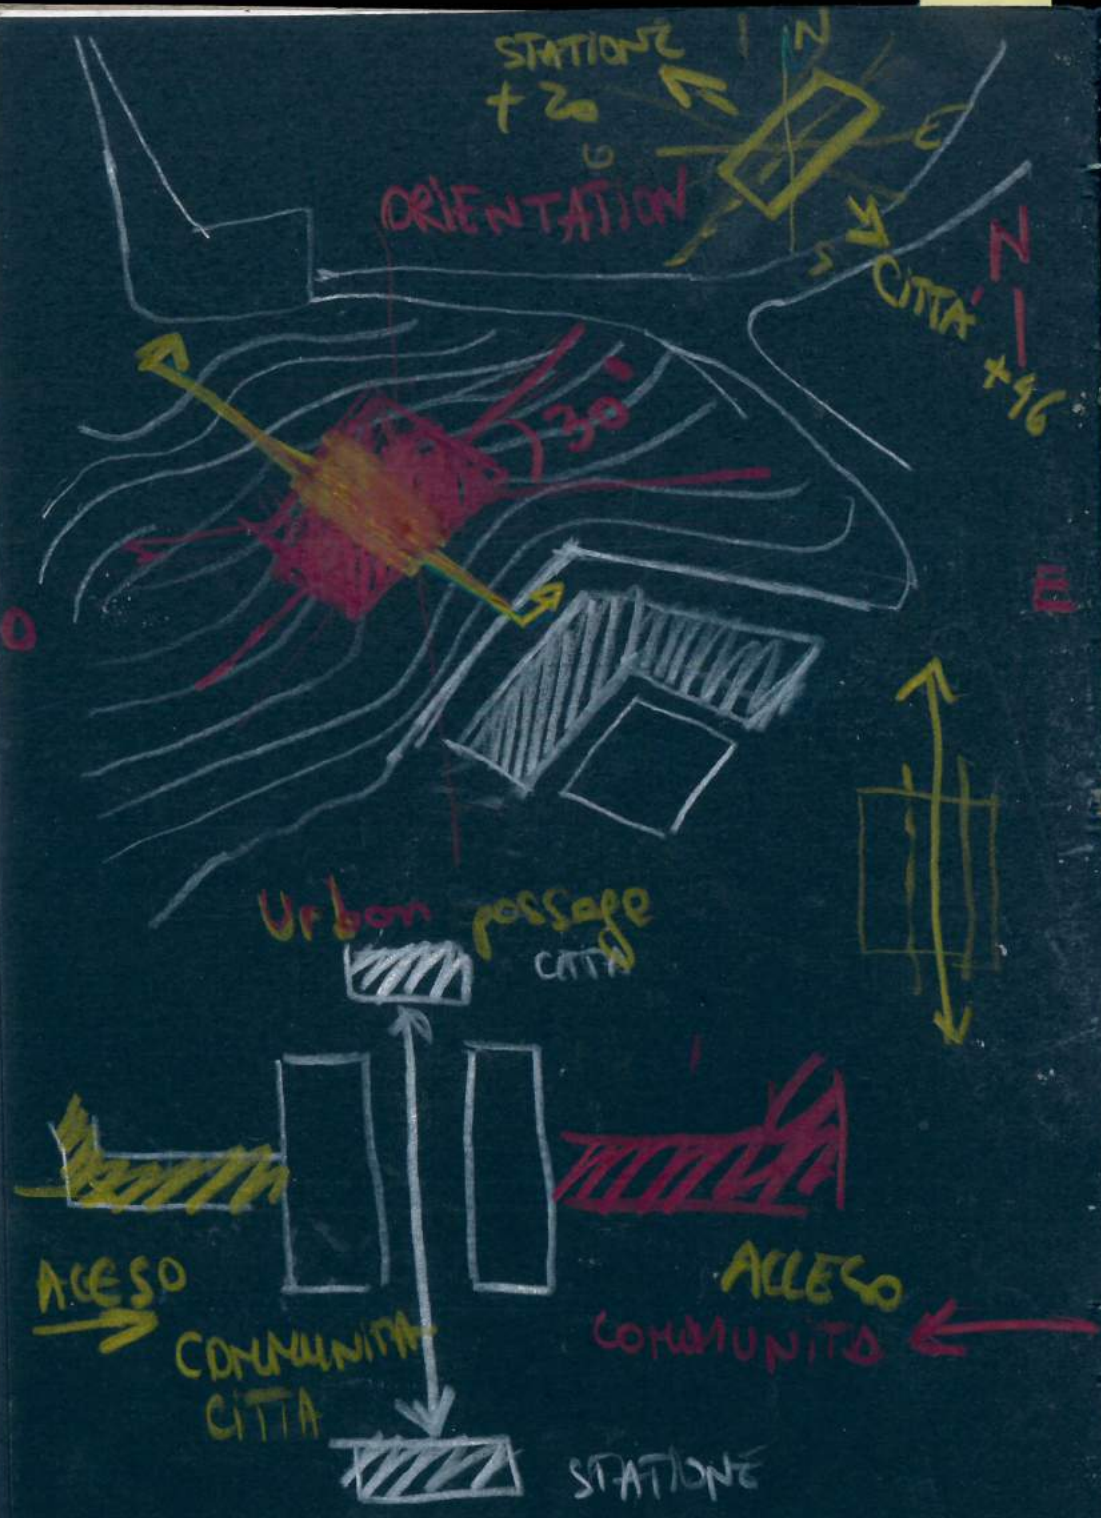 STATIONE
+20
N
E
O
S
ORIENTATION
CITTÀ
+46
N
30°
E
O
Urban passage
CITTÀ
ACESO
COMMUNITA
CITTA
ACCESO
COMMUNITA
STATIONE